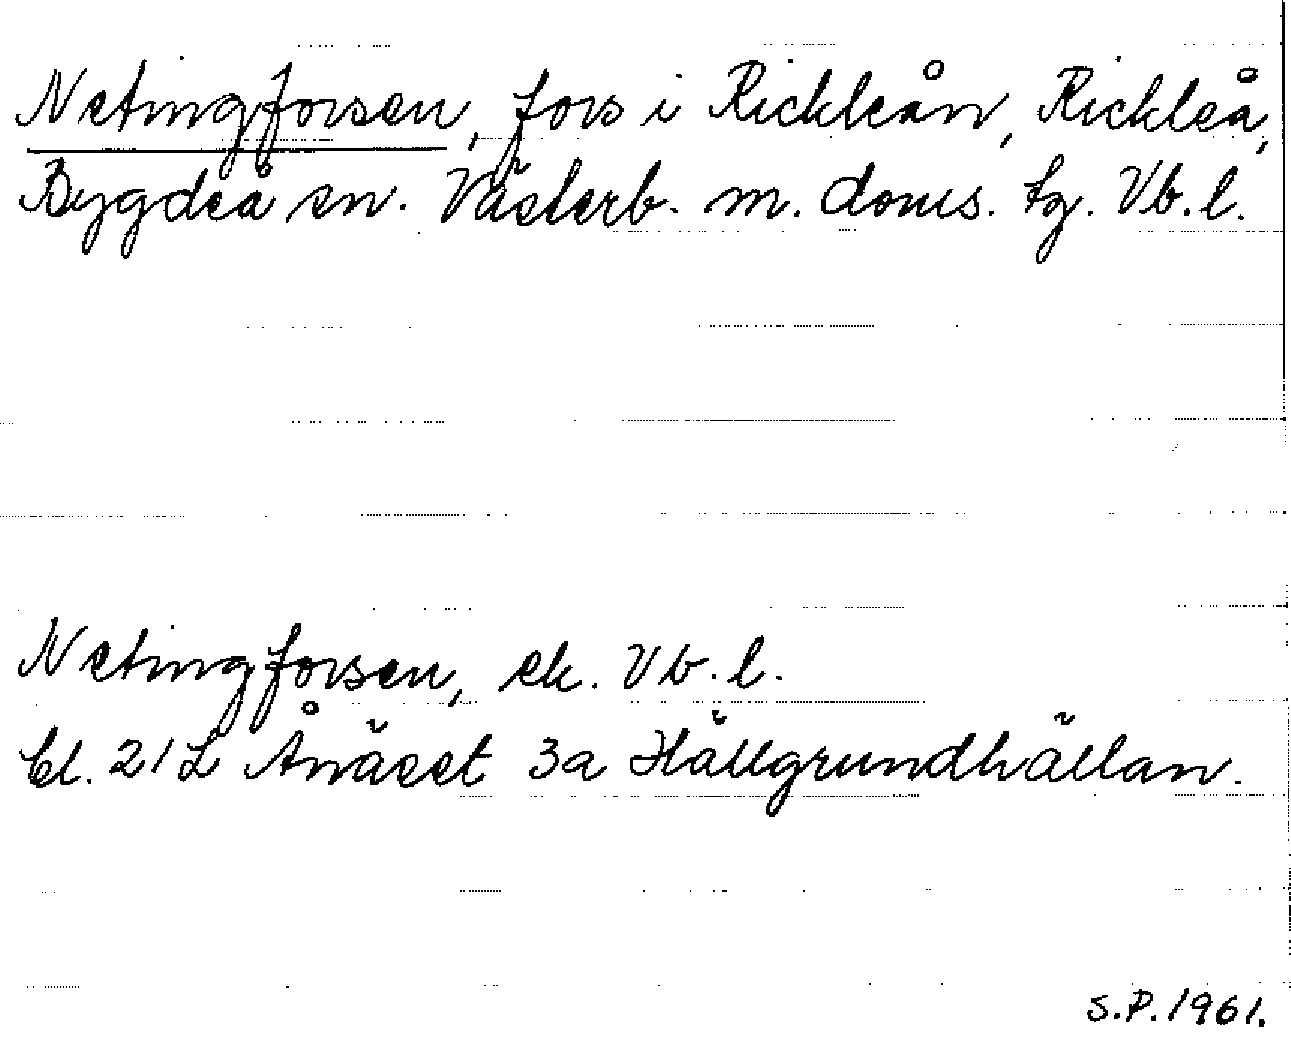 Netingforsen, fors i Rickleån, Rickleå,
Bygdeå sn. Västerb. m. doms. tg. Vb. l.
Netingforsen, ek. Vb. l.
bl. 21 L Ånäset 3a Hällgrundhällan.
S.P. 1961.